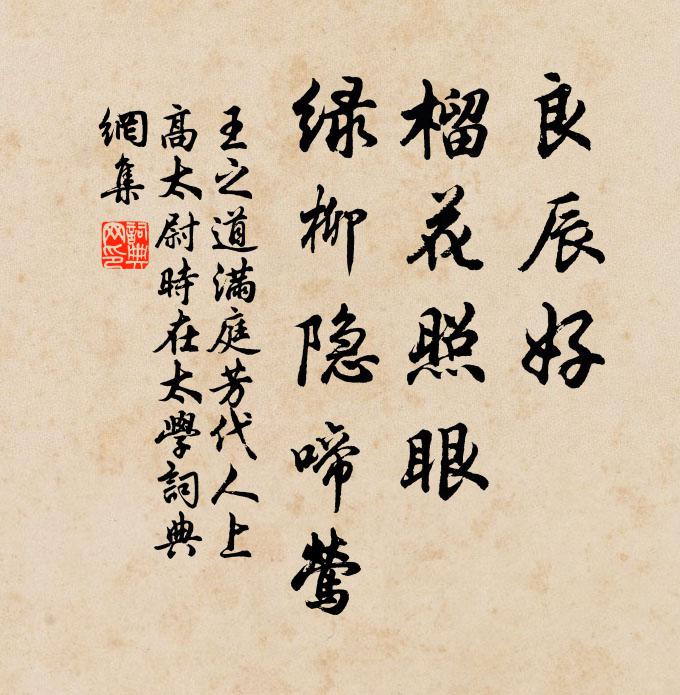 良辰好
榴花照眼
緑柳隐啼莺
王之道满庭芳代人上
高太尉時在太學詞典
網集
詞典
网印